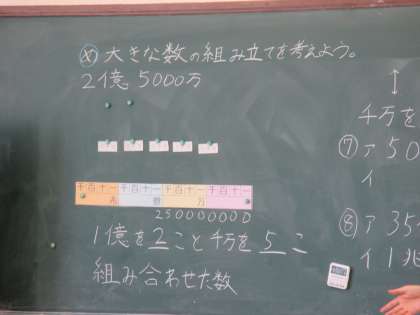 め 大きな数の組み立てを考えよう。
2億5000万
千百十一千百十一千百十一千百十一
兆 億 万
250000000
1億を2こと千万を5こ
組み合わせた数
千万を
⑦ ア 50
イ
⑧ ア 35
イ 1兆